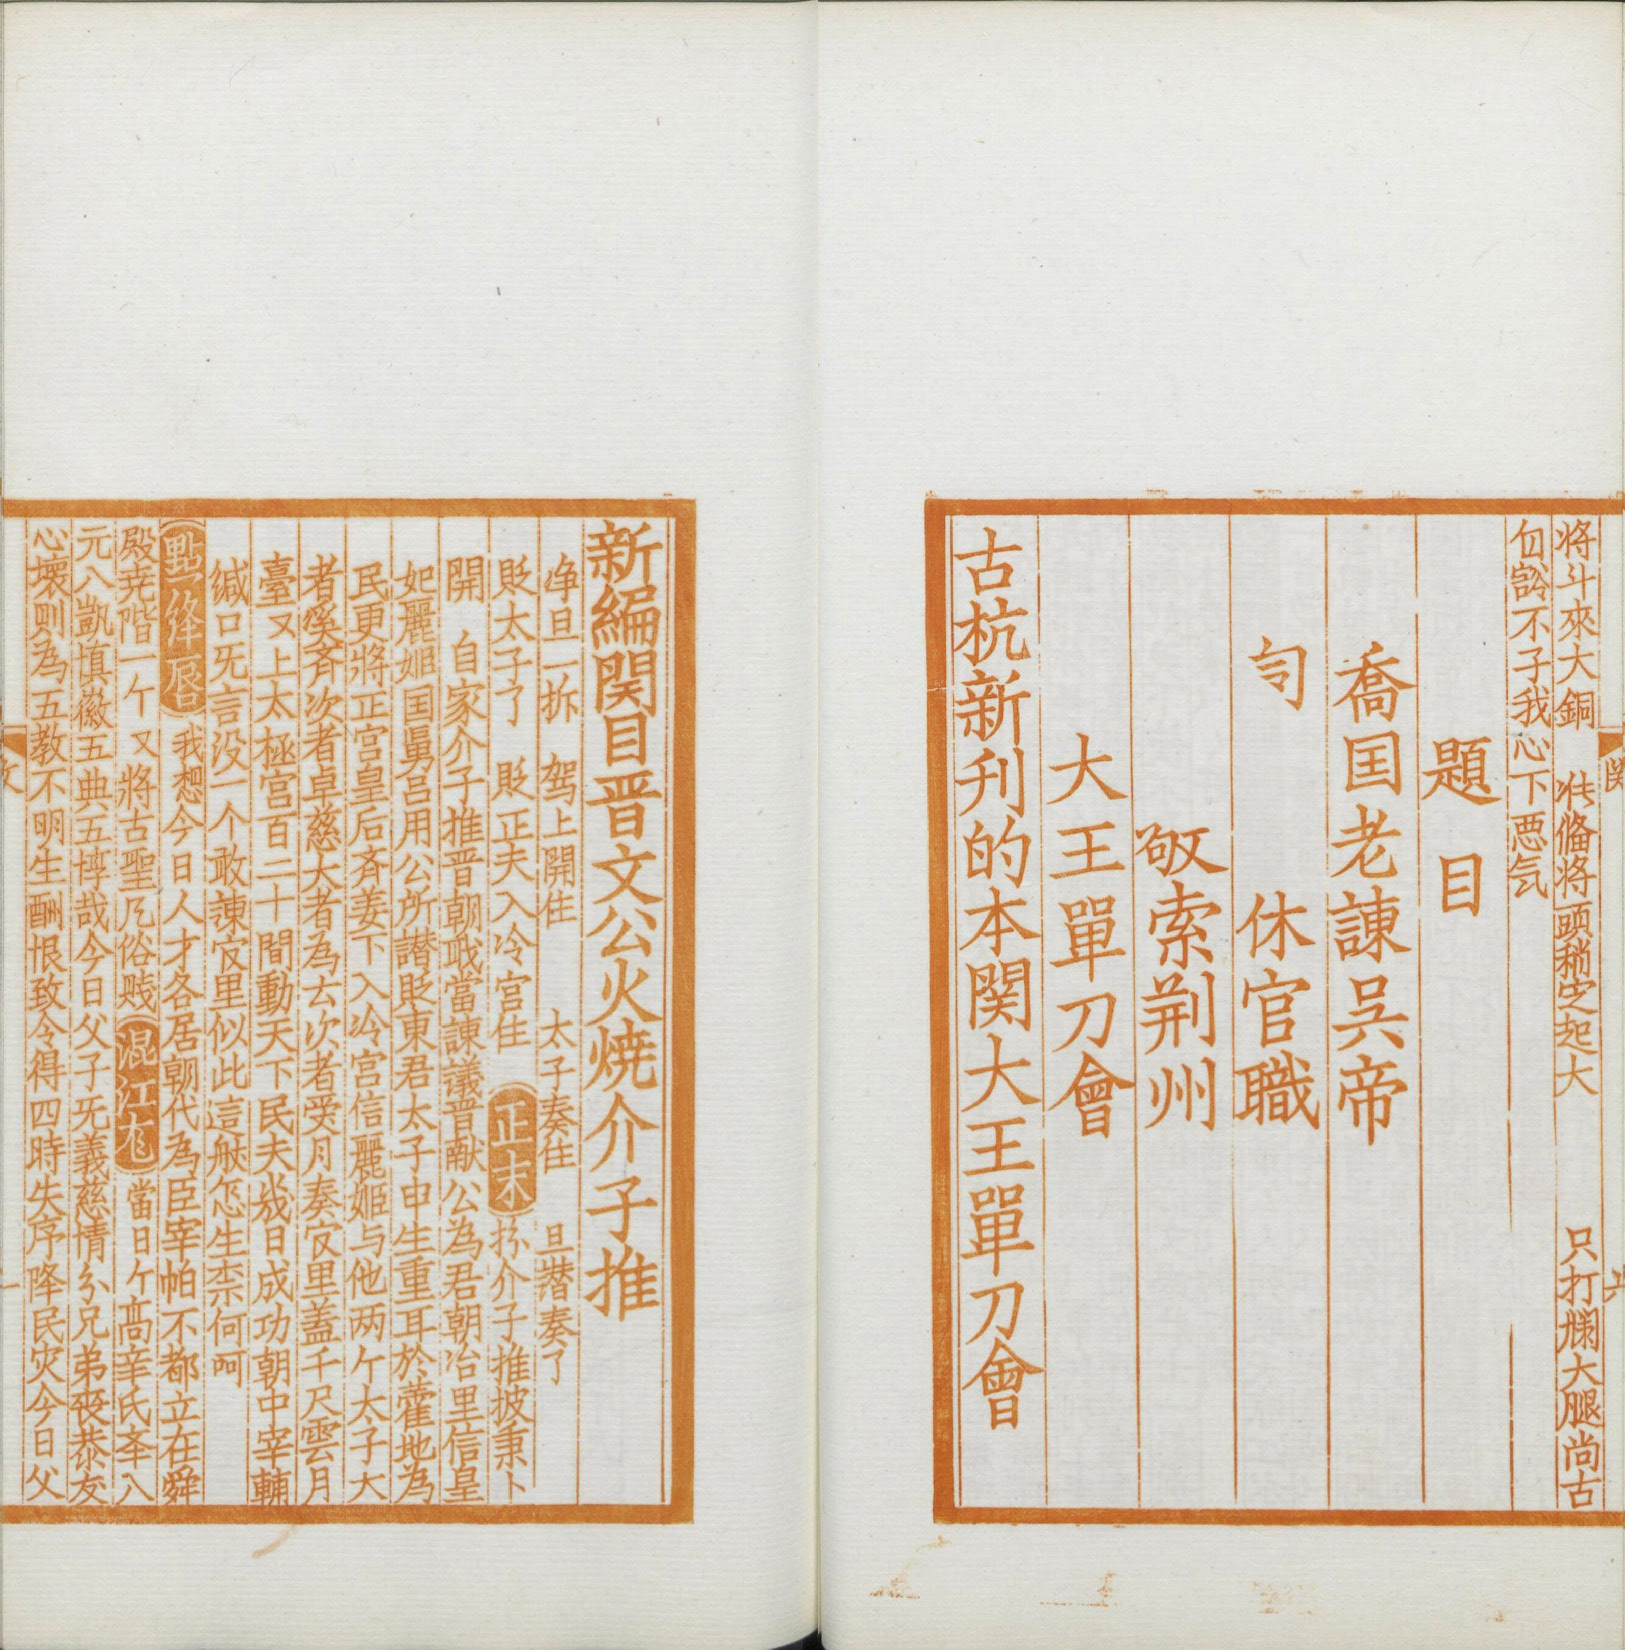 将斗來大銅 㹥俻将頭稍㝎起大 只打爛大腿尚古
自豁不子我心下悪気
題目
喬国老諌吳帝
休官職
敬索荆州
大王單刀會
古杭新刋的本関大王單刀會
新編関目晋文公火焼介子推
净旦一折 駕上開住 太子奏住 旦譖奏了
貶太子了 貶正夫入冷宮住 正末 扮介子推披秉卜
開 自家介子推晋朝職當諌議晋献公為君朝冶里信皇
妃麗姬国舅吕用公所譖貶東君太子申生重耳於藿地為
民更將正宮皇后斉姜下入冷宮信麗姬与他两个太子大
者奚斉次者卓慈大者為去次者受月奏官里盖千尺雲月
臺又上太極宮百二十間動天下民夫㡬日成功朝中宰輔
緘口旡言没一个敢諌官里似此這般怎生柰何呵
點絳唇 我想今日人才各居朝代為臣宰帕不都立在舜
殿尭階一个又將古聖凢俗贱 混江龙 當日个髙辛氏夲八
元八凱慎徽五典五惇哉今日父子旡義慈情分兄弟丧恭友
心壊则為五教不明生酬恨致令得四時失序降民灾今日父